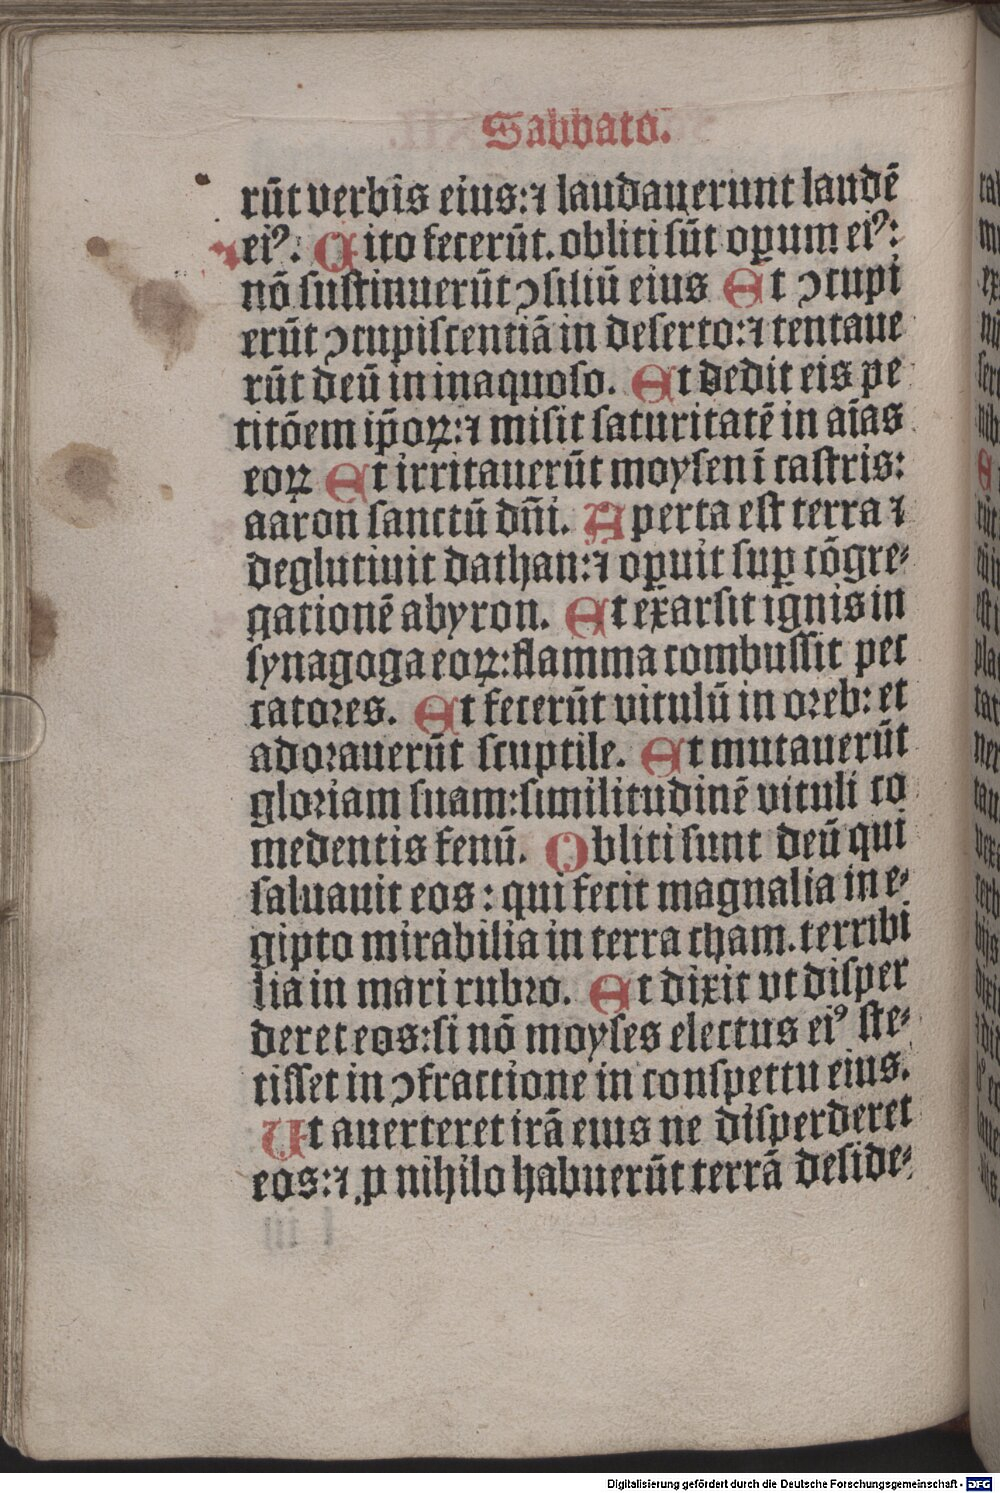 Sabbato.
rūt verbis eius:⁊ laudauerunt laudē
eiꝰ: Cito fecerūt. obliti sūt oꝑum eiꝰ:
nō sustinuerūt ↄsiliū eius Et ↄcupi
erūt ↄcupiscentiā in deserto:⁊ tentaue
rūt deū in inaquoso. Et dedit eis pe
titōem ip̄oꝝ:⁊ misit saturitatē in aīas
eoꝝ Et irritauerūt moysen ī castris:
aaron sanctū dn̄i. Aperta est terra ⁊
deglutiuit dathan:⁊ oꝑuit suꝑ cōgre⸗
gationē abyron. Et exarsit ignis in
synagoga eoꝝ:flamma combussit pec
catores. Et fecerūt vitulū in oreb: et
adorauerūt sculptile. Et mutauerūt
gloriam suam:similitudinē vituli co
medentis fenū. Obliti sunt deū qui
saluauit eos: qui fecit magnalia in e⸗
gipto mirabilia in terra cham. terribi
lia in mari rubro. Et dixit vt disper
deret eos:si nō moyses electus eiꝰ ste⸗
tisset in ↄfractione in conspectu eius.
Ut auerteret irā eius ne disperderet
eos:⁊ ꝓ nihilo habuerūt terrā deside⸗
Digitalisierung gefördert durch die Deutsche Forschungsgemeinschaft - DFG